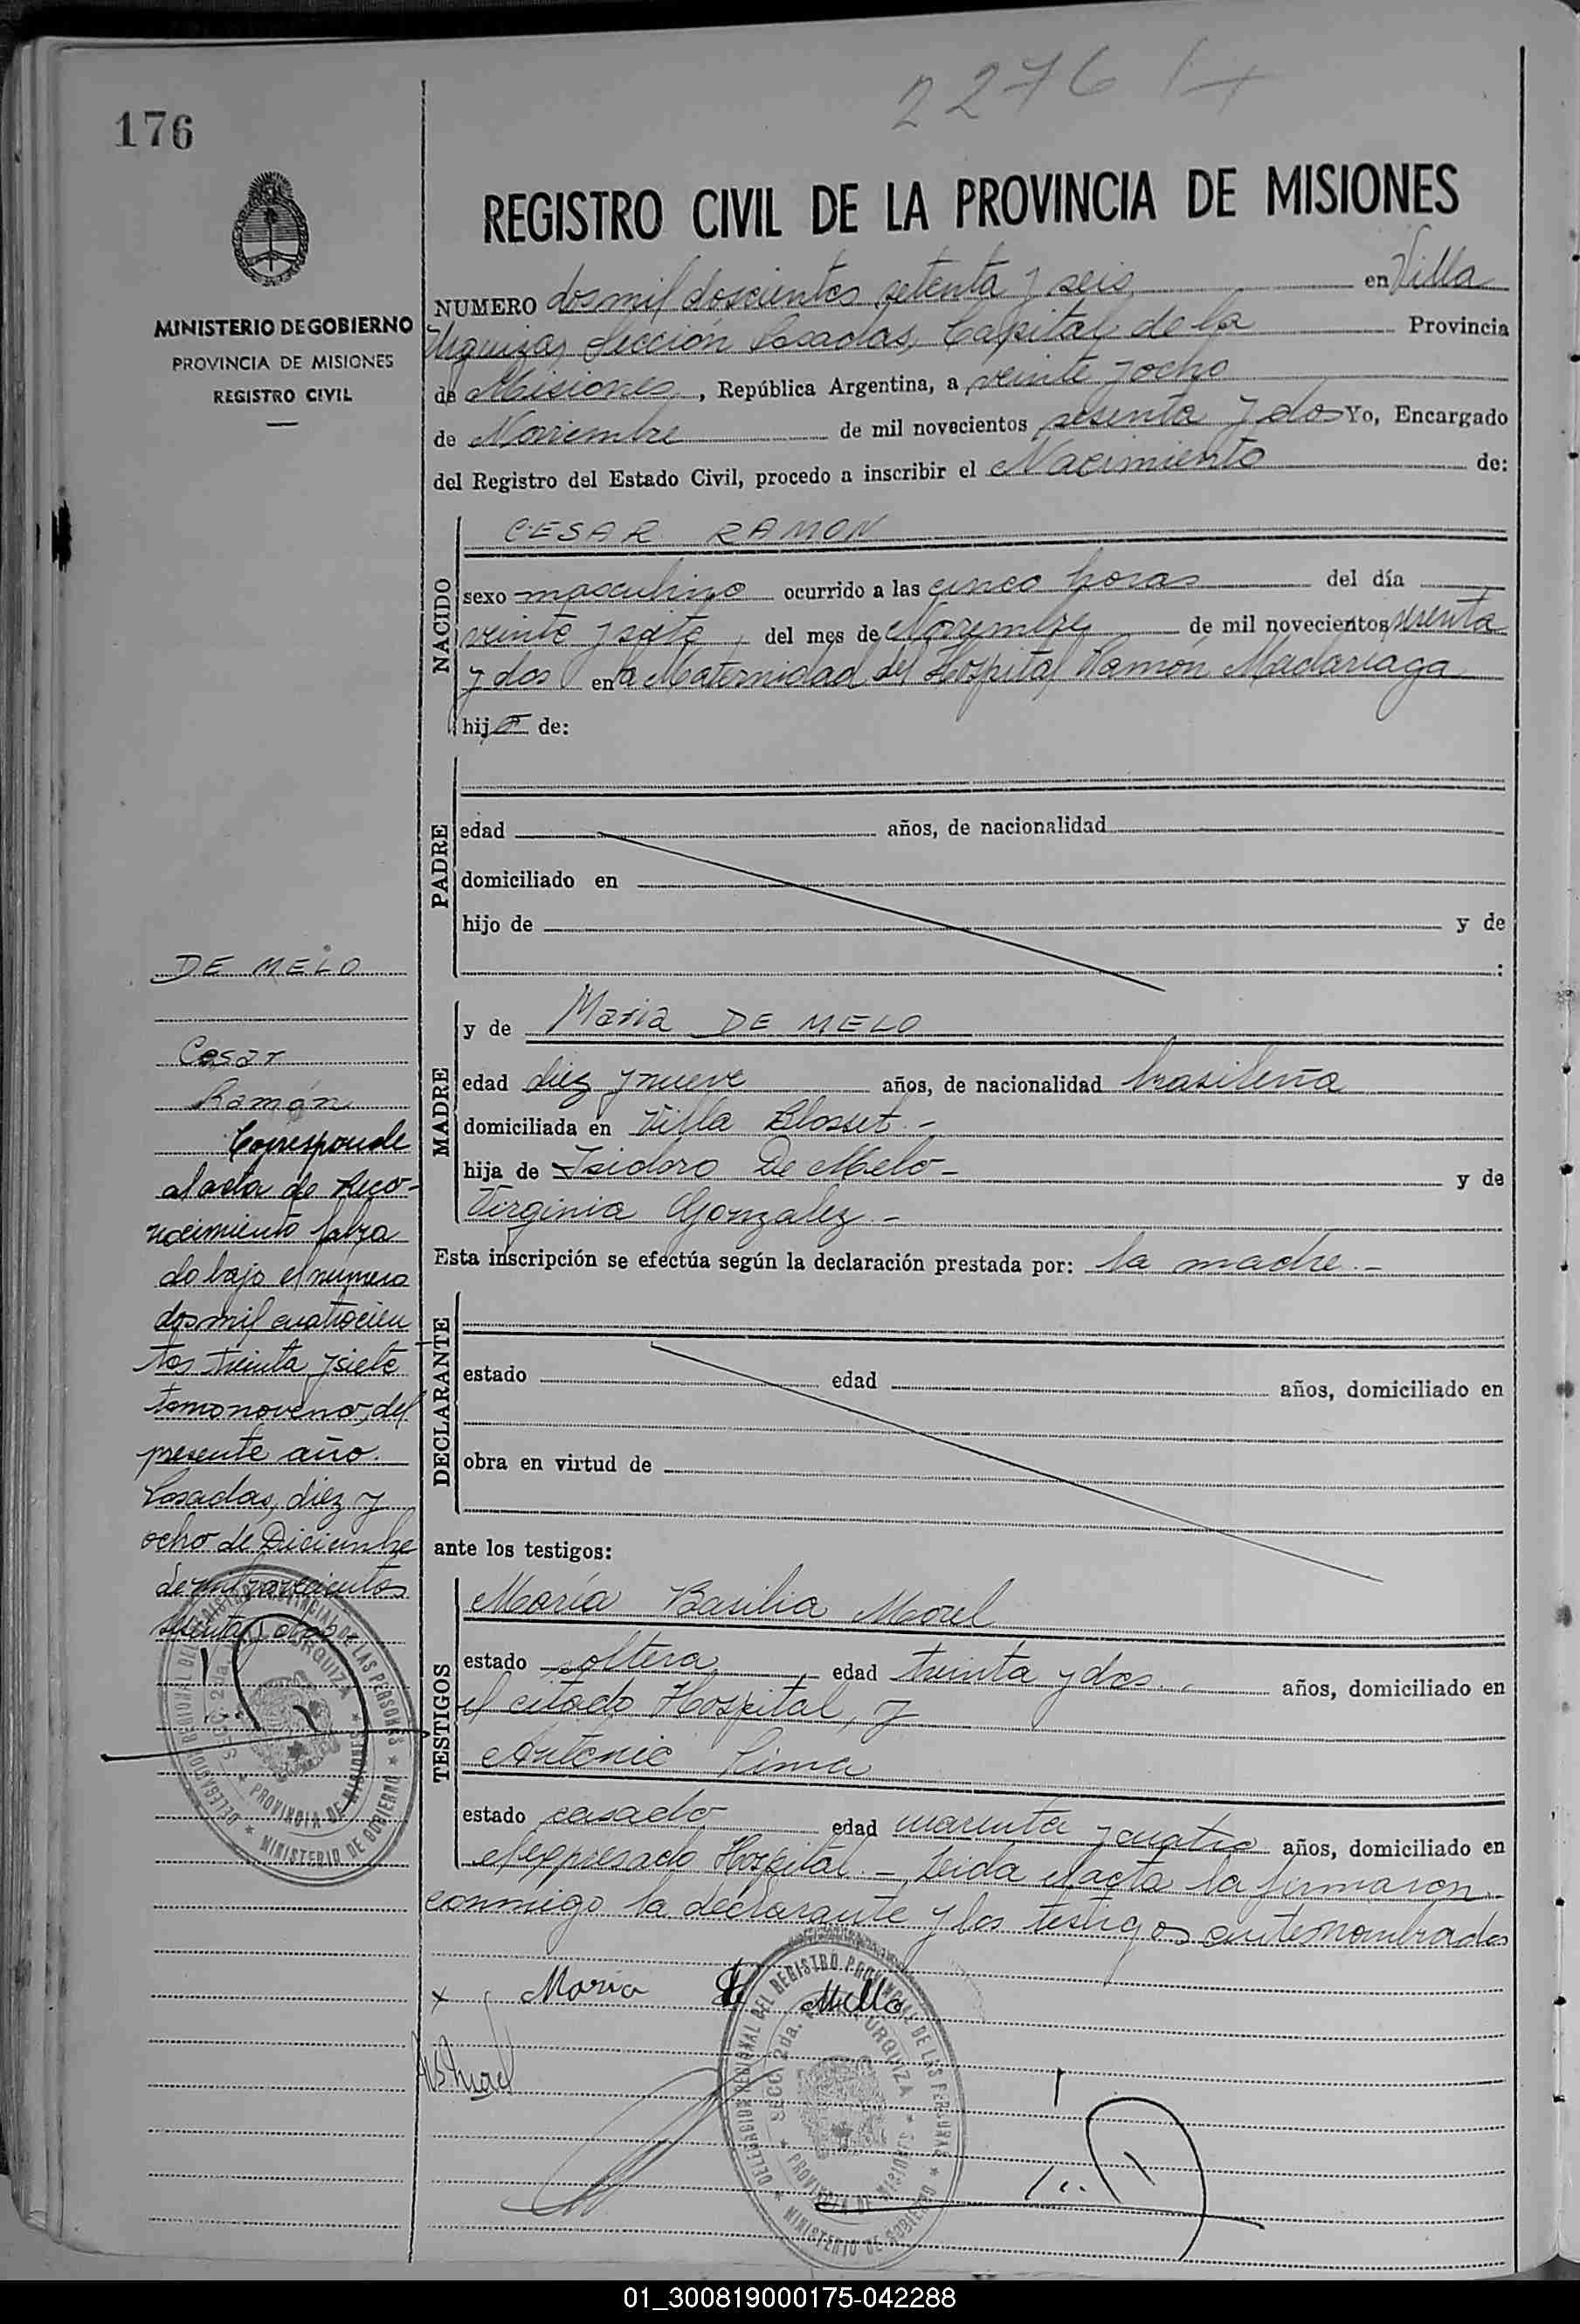 2276
176
REGISTRO CIVIL DE LA PROVINCIA DE MISIONES
MINISTERIO DE GOBIERNO
PROVINCIA DE MISIONES
REGISTRO CIVIL
NUMERO dosmil doscientos setenta y seis en Villa
Urquiza, Sección Posadas, Capital de la Provincia
de Misiones, República Argentina, a veinte y ocho
de Noviembre de mil novecientos sesenta y dos Yo, Encargado
del Registro del Estado Civil, procedo a inscribir el Nacimiento de:
NACIDO
CESAR RAMON
sexo masculino ocurrido a las cinco horas del día
veinte y siete, del mes de Noviembre de mil novecientos sesenta
y dos en la Maternidad del Hospital Ramón Madariaga
hijo de:
PADRE
edad años, de nacionalidad
domiciliado en
hijo de y de
:
MADRE
y de Maria DE MELO
edad diez y nueve años, de nacionalidad brasileña
domiciliada en Villa Blosset.-
hija de Isidoro De Melo- y de
Virginia Gonzalez.-
Esta inscripción se efectúa según la declaración prestada por: la madre.-
DECLARANTE
estado edad años, domiciliado en
obra en virtud de
ante los testigos:
TESTIGOS
María Basilia Morel
estado soltera edad treinta y dos años, domiciliado en
el citado Hospital, y
Antonio Lima
estado casado edad cuarenta y cuatro años, domiciliado en
el expresado Hospital.- Leida el acta la firmaron
conmigo la declarante y los testigos antenombrados
Maria de Mello
DE MELO
Cesar
Ramón
Corresponde
al acta de Reco-
nocimiento labra
do bajo el numero
dosmil cuatrocien
tos treinta y siete
tomo noveno, del
presente año.
Posadas, diez y
ocho de Diciembre
de mil novecientos
sesenta y dos-
DELEGACION REGIONAL DEL REGISTRO PROVINCIAL DE LAS PERSONAS
SECC. 2da. URQUIZA
PROVINCIA DE MISIONES
MINISTERIO DE GOBIERNO
DELEGACION REGIONAL DEL REGISTRO PROVINCIAL DE LAS PERSONAS
SECC. 2da. URQUIZA
PROVINCIA DE MISIONES
MINISTERIO DE GOBIERNO
01_300819000175-042288